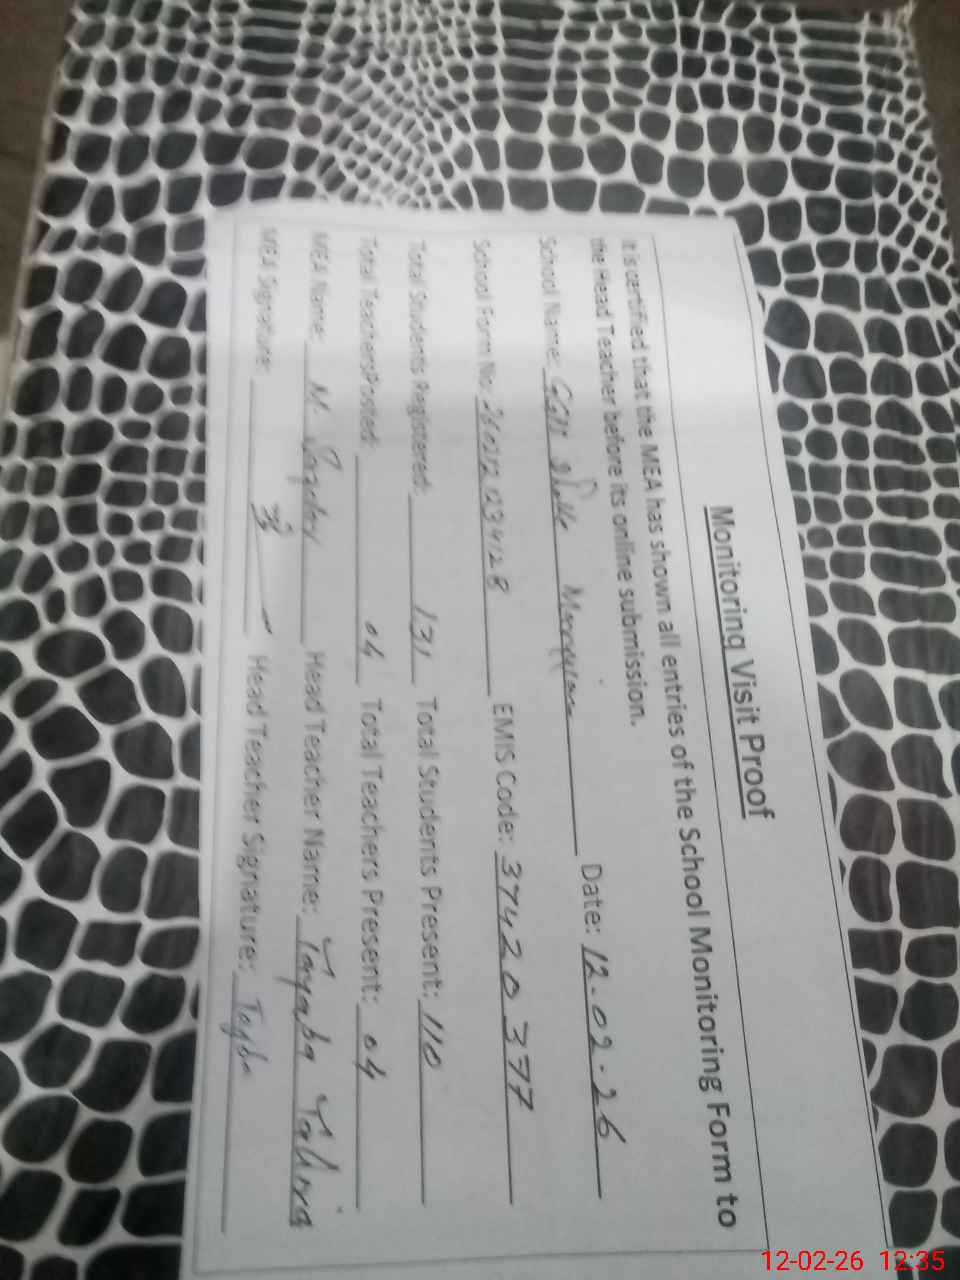 Monitoring Visit Proof
It is certified that the MEA has shown all entries of the School Monitoring Form to
the Head Teacher before its online submission.
School Name: Date: 12.02.26
School Form No: EMIS Code: 37420377
Total Students Registered: 131 Total Students Present: 110
Total TeachersPosted: 04 Total Teachers Present: 04
MEA Name: M. Head Teacher Name: Tayaba Tahira
MEA Signature: Head Teacher Signature: Tayba
12-02-26 12:35